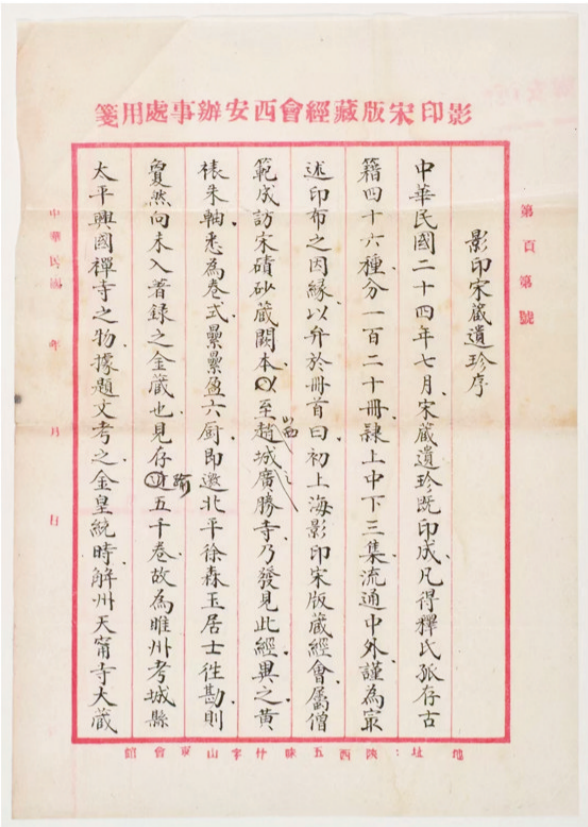 影印宋版藏經會西安辦事處用箋
第 頁 第 號
影印宋藏遺珍序
中華民國二十四年七月、宋藏遺珍既印成、凡得釋氏孤存古
籍四十六種、分一百二十冊、隸上中下三集、流通中外、謹為冣
述印布之因緣、以弁於冊首曰、初上海影印宋版藏經會、屬僧
範成訪宋磧砂藏闕本、至山西趙城廣勝寺、乃發見此經、異之、黃
裱朱軸、悉為卷式、纍纍盈六厨、即邀北平徐森玉居士徃勘、則
敻然向未入著錄之金藏也、見存逾五千卷、故為睢州考城縣
太平興國禪寺之物、據題文考之、金皇統時、解州天甯寺大藏
中華民國 年 月 日
地址：陝西五味什字山東會館